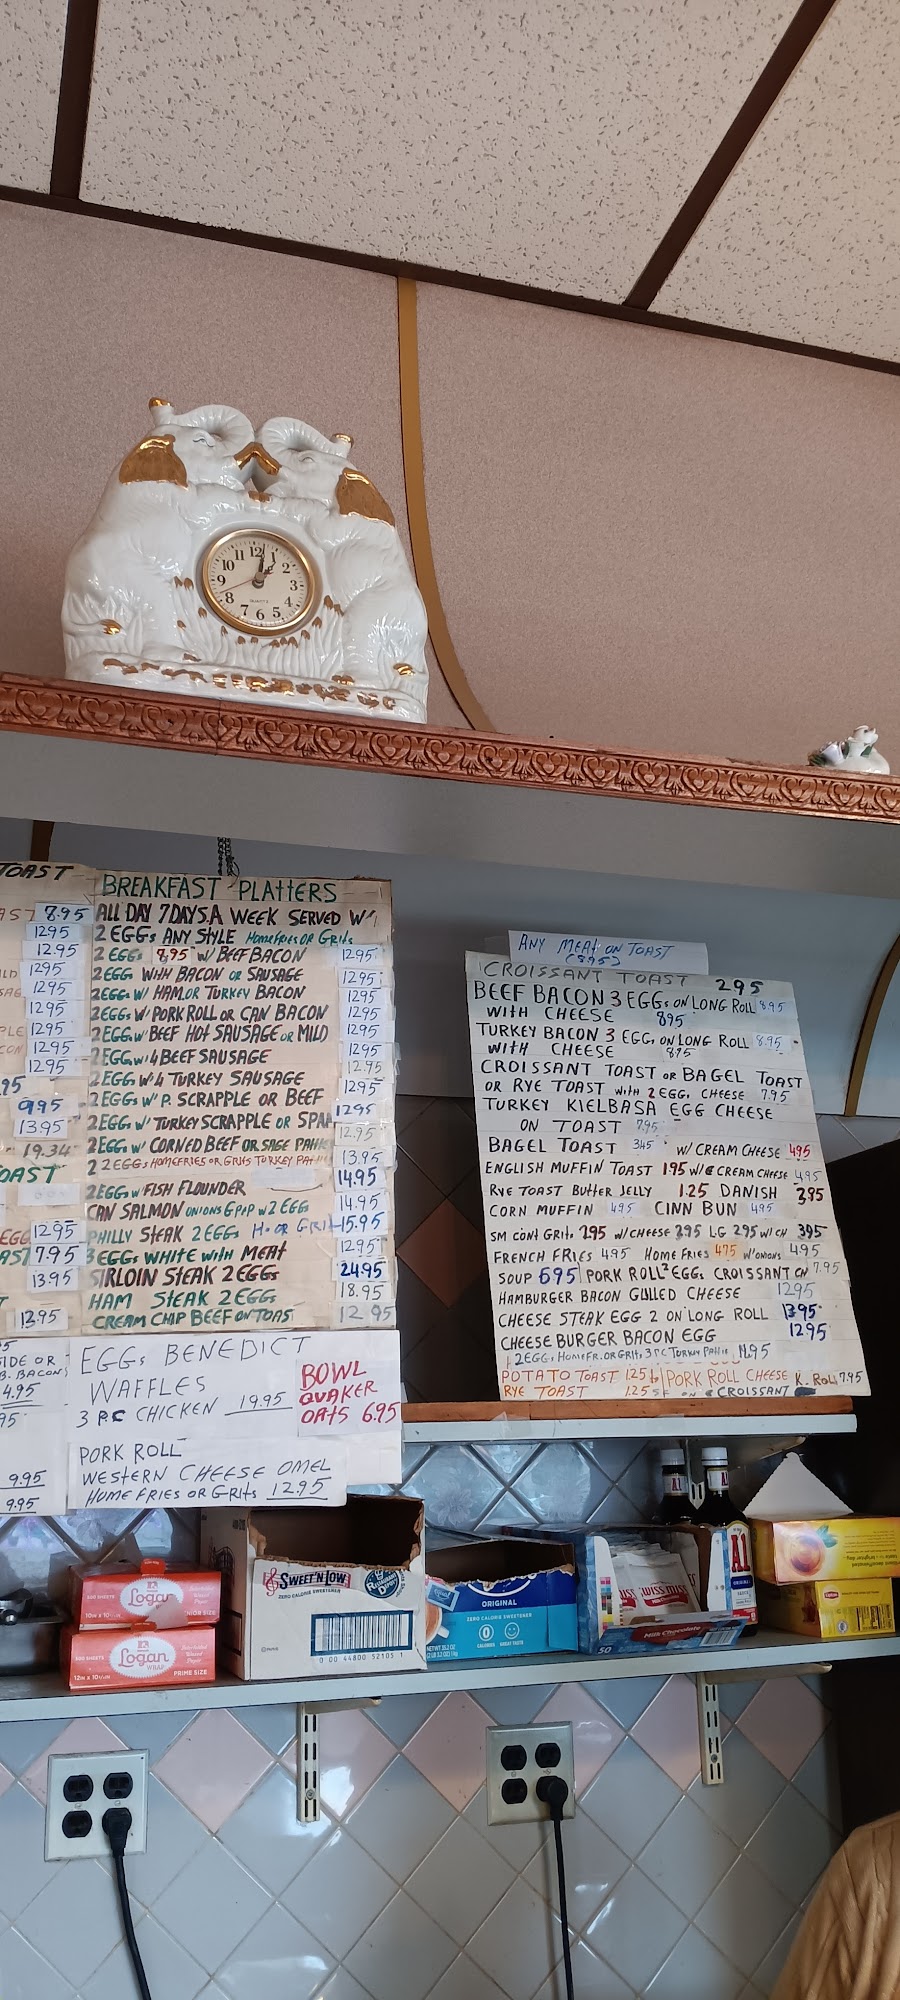 TOAST
8.95
1295
12.95
1295
1295
1295
1295
1295
1295
995
13.95
19.34
OAST
1295
7.95
1395
13.95
SIDE OR
B. BACON
4.95
9.95
9.95
BREAKFAST PLATTERS
ALL DAY 7 DAYS A WEEK SERVED W/
2 EGGs ANY STYLE HOMEFRIES OR GRITS
2 EGGs 895 W/ BEEF BACON 1295
2 EGG WITH BACON OR SAUSAGE 1295
2 EGG W/ HAM OR TURKEY BACON 1295
2 EGGs W/ PORK ROLL OR CAN BACON 1295
2 EGG W/ BEEF HOT SAUSAGE OR MILD 1295
2 EGG W/ 4 BEEF SAUSAGE 1295
2 EGG W/ 4 TURKEY SAUSAGE 1295
2 EGGs W/ P. SCRAPPLE OR BEEF 1295
2 EGGs W/ TURKEY SCRAPPLE OR SPAM 1295
2 EGG W/ CORNED BEEF OR SAGE 12.95
2 2 EGGs HOMEFRIES OR GRITS TURKEY 13.95
2 EGG W/ FISH FLOUNDER 14.95
CAN SALMON ONIONS G POP W 2 EGG 14.95
PHILLY STEAK 2 EGGS H. OR GRIT 15.95
3 EGGS WHITE WITH MEAT 1295
SIRLOIN STEAK 2 EGGS 24.95
HAM STEAK 2 EGGS 18.95
CREAM CHIP BEEF ON TOAS 12 95
EGGs BENEDICT
WAFFLES
3 PC CHICKEN 19.95
BOWL
QUAKER
OATS 6.95
PORK ROLL
WESTERN CHEESE OMEL
HOME FRIES OR GRITS 1295
ANY MEAT ON TOAST
(895)
CROISSANT TOAST 295
BEEF BACON 3 EGGs ON LONG ROLL 8.95
WITH CHEESE 895
TURKEY BACON 3 EGGs ON LONG ROLL 8.95
WITH CHEESE 895
CROISSANT TOAST OR BAGEL TOAST
OR RYE TOAST WITH 2 EGGs CHEESE 7.95
TURKEY KIELBASA EGG CHEESE
ON TOAST 795
BAGEL TOAST 345 W/ CREAM CHEESE 495
ENGLISH MUFFIN TOAST 195 W/ CREAM CHEESE 495
RYE TOAST BUTTER JELLY 1.25 DANISH 395
CORN MUFFIN 495 CINN BUN 495
SM CONT GRITS 295 W/CHEESE 395 LG 295 W/CH 395
FRENCH FRIES 495 HOME FRIES 475 W/ONIONS 495
SOUP 695 PORK ROLL 2 EGGs CROISSANT ON 7.95
HAMBURGER BACON GULLED CHEESE 1295
CHEESE STEAK EGG 2 ON LONG ROLL 1395
CHEESE BURGER BACON EGG 1295
2 EGGs HOMEFR. OR GRITS 3 PC TURKEY PATTIE 11.95
POTATO TOAST 125 PORK ROLL CHEESE K. ROLL 7.95
RYE TOAST 125 ON CROISSANT
11 12 1 2 3 4 5 6 7 8 9 10
QUARTZ
500 SHEETS
Logan
JUNIOR SIZE
500 SHEETS
Logan
WRAP
PRIME SIZE
SWEET'N LOW
ZERO CALORIE SWEETENER
0 00 44800 52105 1
equal
ORIGINAL
ZERO CALORIE SWEETENER
0
CALORIES
GREAT TASTE
SWISS MISS
Milk Chocolate
50
A.1
A.1
A.1
ORIGINAL
Lipton